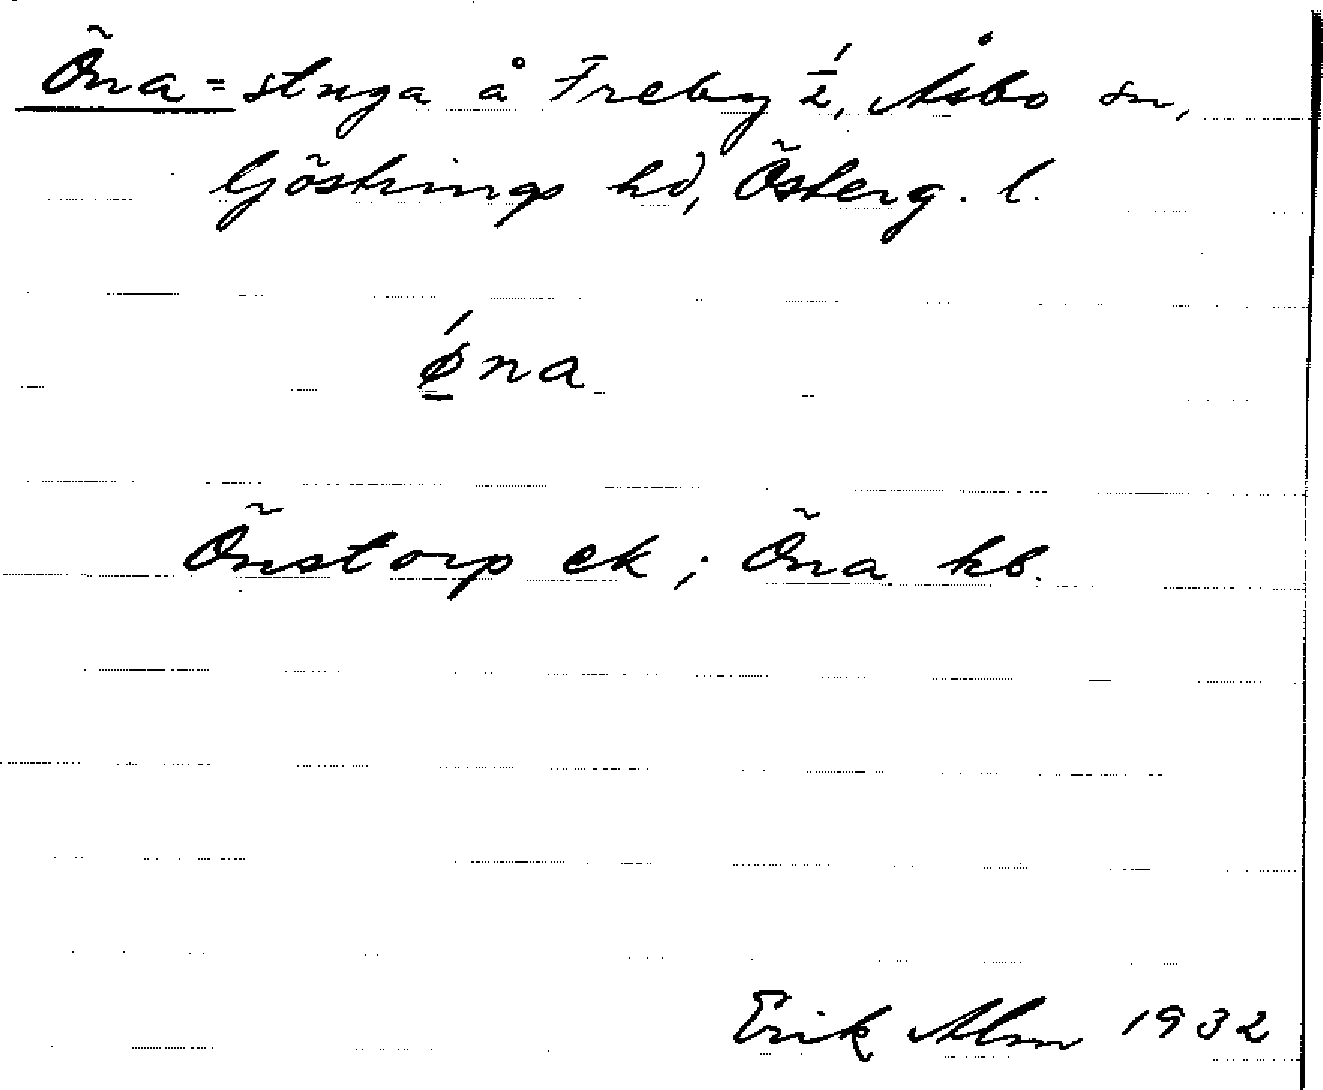 Öna = stuga å Freby 1/2, Åsbo sn,
Göstrings hd, Österg. l.
ǿna
Önstorp ek; Öna kb.
Erik Alm 1932